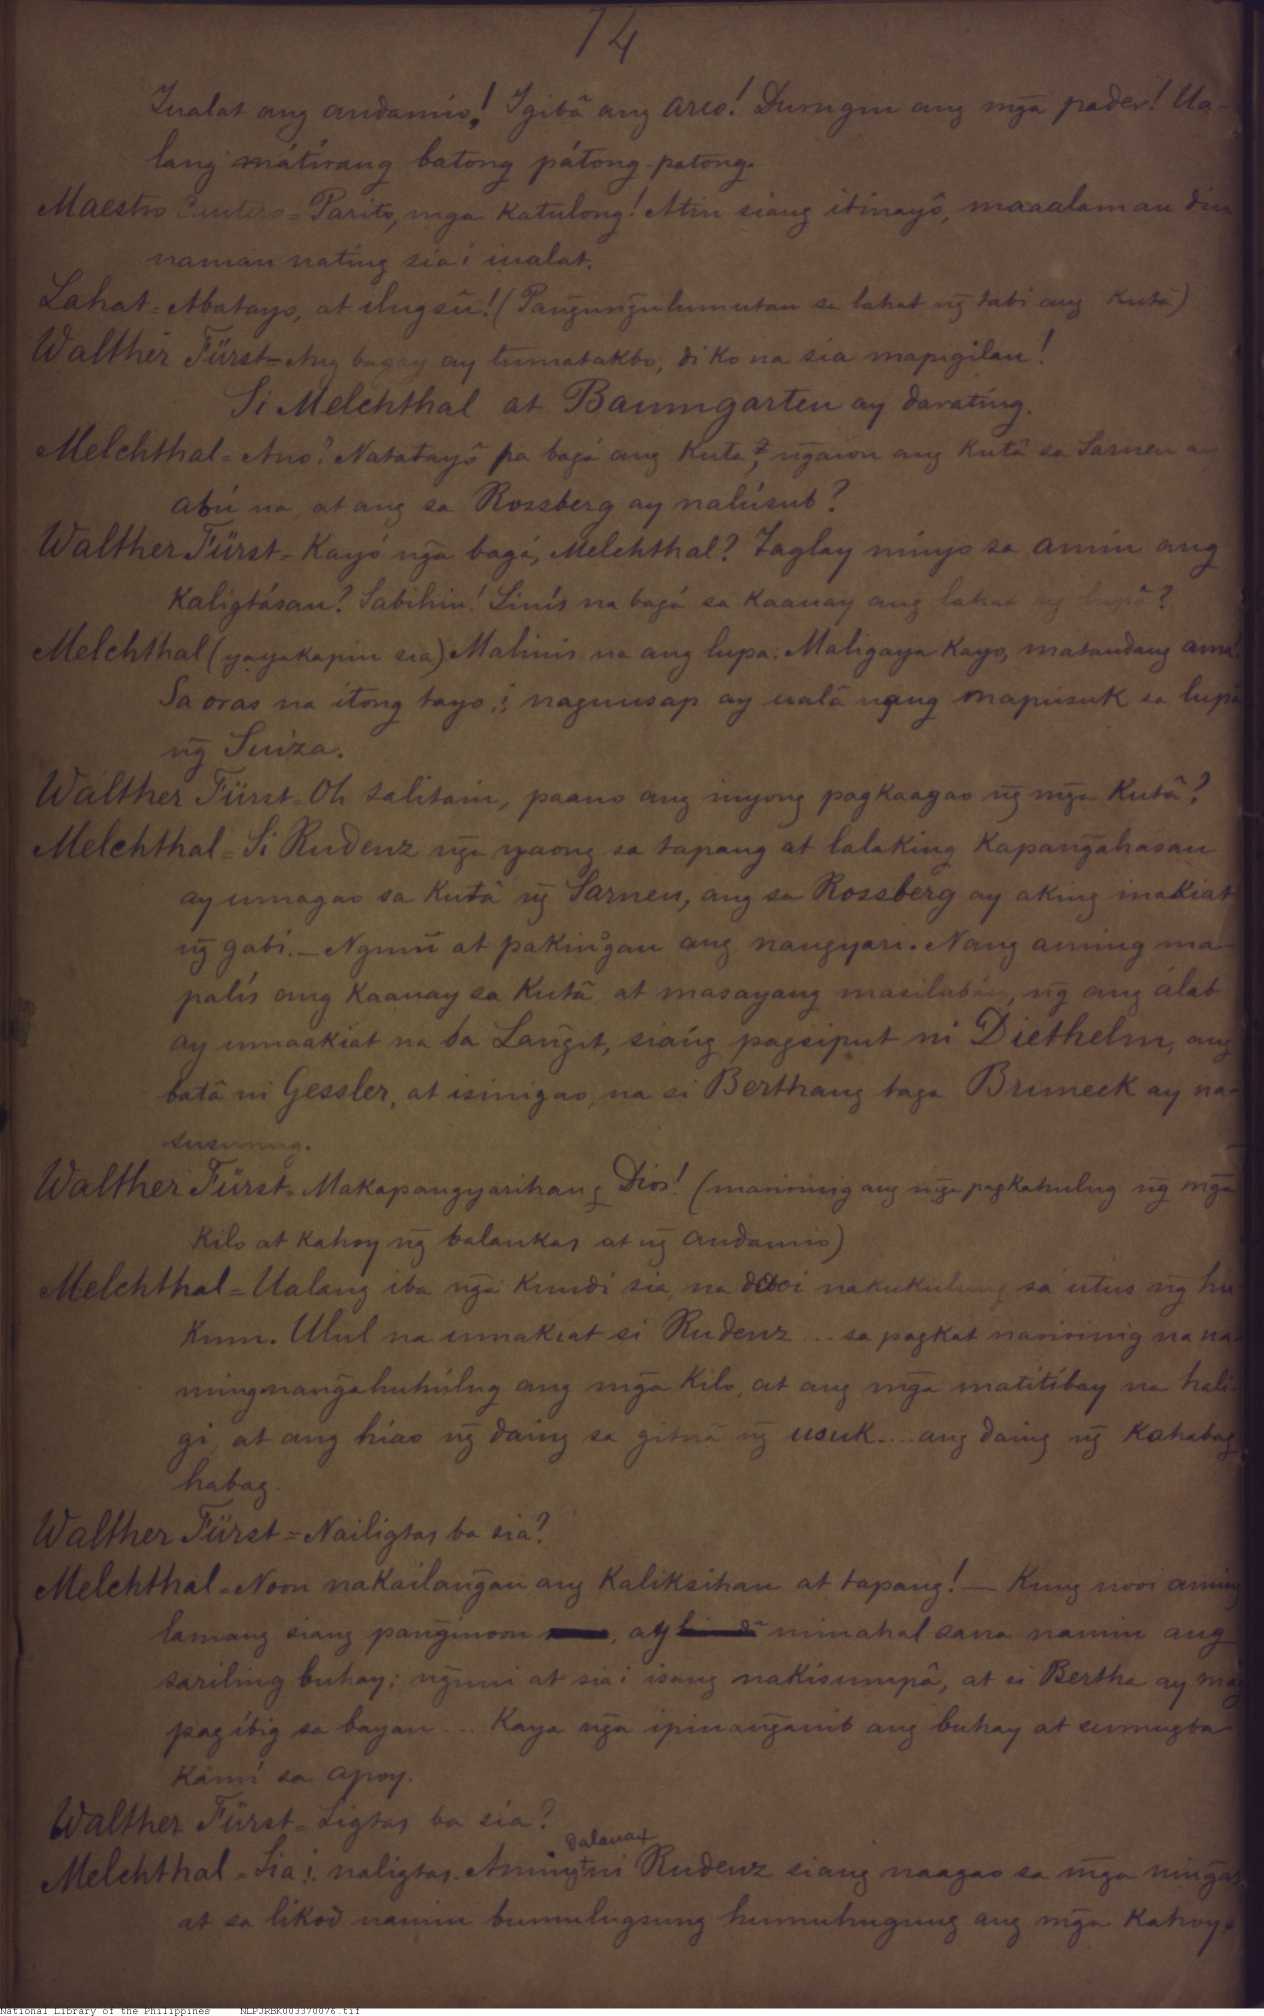 74
Iualat ang andamio! Igibâ ang arco! Durugin ang mg̃a pader! Ua-
lang mátirang batong pátong-patong.
Maestro Cantero = Parito, mga katulong! Atin siang itinayô, maaalaman din
naman nating sia i iualat.
Lahat = Abatayo, at ilugsũ! (Pang̃ung̃ulumutan sa lahat ng̃ tabi ang kutâ)
Walther Fürst = Ang bagay ay tumatakbo, di ko na sia mapigilan!
Si Melchthal at Baumgarten ay darating.
Melchthal = Ano? Natatayô pa bagá ang kutâ, ng̃aion ang kutâ sa Sarnen a
abú na at ang sa Rossberg ay nalúsub?
Walther Fürst = Kayó ng̃a bagá, Melchthal? Taglay ninyo sa amin ang
kaligtásan? Sabihin! Linís na bagá sa kaauay ang lahat ng lupâ?
Melchthal (yayakapin sia) Malinis na ang lupa. Maligaya kayo, matandang ama!
Sa oras na itong tayo i naguusap ay ualâ ng̃ang mapusuk sa lupa
ng̃ Suiza.
Walther Fürst = Oh salitain, paano ang inyong pagkaagao ng̃ mg̃a kutâ?
Melchthal = Si Rudenz ng̃a yaong sa tapang at lalaking kapang̃ahasan
ay umagao sa kutâ ng̃ Sarnen, ang sa Rossberg ay aking inakiat
ng̃ gabí. — Nguni at paking̃gan ang nangyari. Nang aming ma-
palís ang kaauay sa kutâ at masayang masilabán, ng̃ ang álab
ay umaakiat na sa Lang̃it, siáng pagsiput ni Diethelm, ang
batâ ni Gessler, at isinigao, na si Berthang taga Bruneck ay na-
susunug.
Walther Fürst = Makapangyarihang Dios! (maririnig ang mg̃a pagkahulug ng̃ mg̃a
kilo at kahoy ng̃ balankas at ng̃ andamio)
Melchthal = Ualang iba ng̃a kundi sia, na dooi nakukulung sa utus ng̃ hu
kum. Ulul na umakiat si Rudenz ... sa pagkat naririnig na na
ming nang̃ahuhúlug ang mg̃a kilo, at ang mg̃a matitíbay na hali
gi at ang hiao ng̃ daing sa gitnâ ng̃ usuk.... ang daing ng̃ kahabag
habag.
Walther Fürst = Nailigtas ba sia?
Melchthal = Noon nakailang̃an ang kaliksihan at tapang! — Kung nooi aming
lamang siang pang̃inoon, ay minahal sana namin ang
sariling buhay; ng̃uni at sia i isang nakisumpâ, at si Bertha ay may
pagíbig sa bayan ... Kaya ng̃a ipinang̃anib ang buhay at sumugba
kamí sa apoy.
Walther Fürst = Ligtas ba sia?
Melchthal = Sia i naligtas. Aming dalaua + ni Rudenz siang naagao sa mg̃a ning̃as
at sa likod namin bumulugsung humuhugung ang mg̃a kahoy.
National Library of the Philippines NLPJRBK003370076.tif